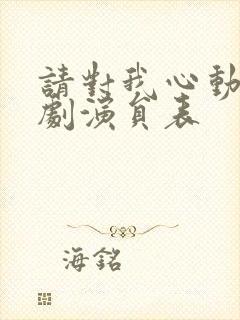 請對我心動
劇演員表
海銘